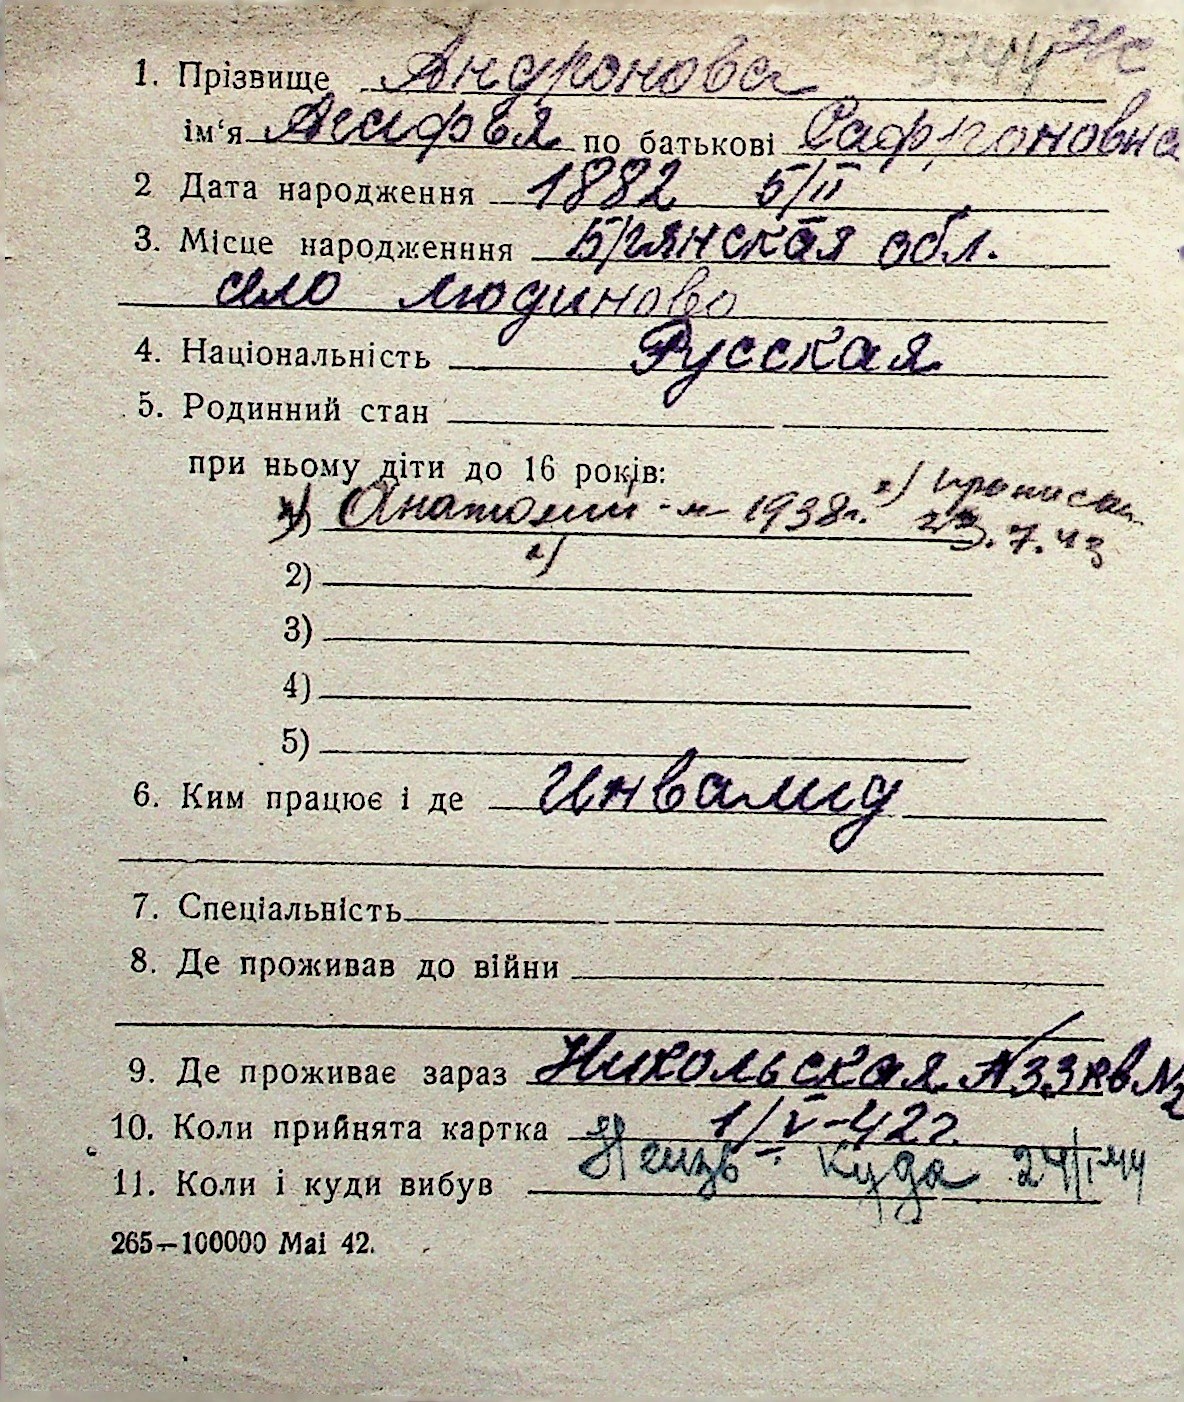 3744 Ж
1. Прізвище Андронова
ім‘я Агафья по батькові Сафроновна
2 Дата народження 1882 5/II
3. Місце народженння Брянская обл.
село Людиново
4. Національність Русская
5. Родинний стан
при ньому діти до 16 років:
x) прописан
1) Анатолий - м 1938г. 23.7.43
x)
2)
3)
4)
5)
6. Ким працює і де Инвалид
7. Спеціальність
8. Де проживав до війни
9. Де проживає зараз Никольская № 33 кв № 2
10. Коли прийнята картка 1/V-42г.
11. Коли і куди вибув Неизв. куда 24/I 44
265—100000 Mai 42.